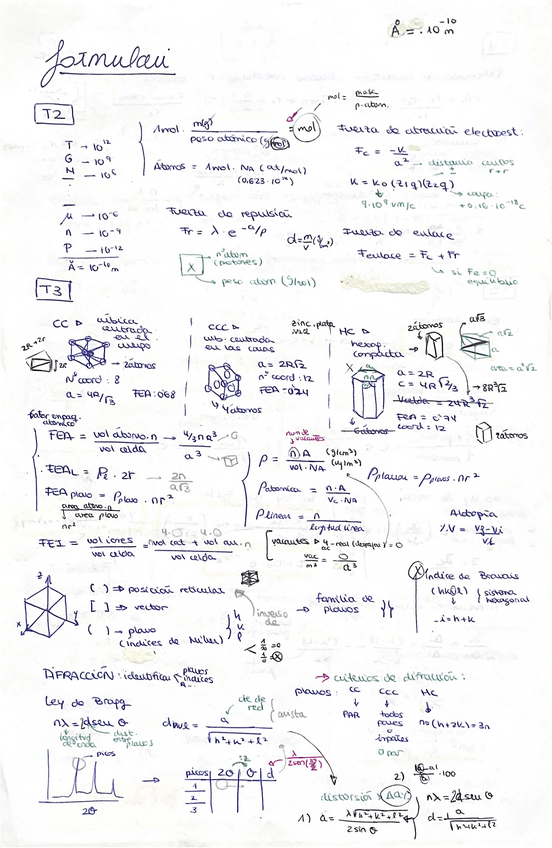 Å = .10⁻¹⁰ m
formulari
T2
T → 10¹²
G → 10⁹
M → 10⁶
μ → 10⁻⁶
n → 10⁻⁹
P → 10⁻¹²
Å = 10⁻¹⁰ m
1mol. m(g) / peso atómico (g/mol) = mol
mol = masa / p.atom.
Átomos = 1mol. NA (at/mol)
(0.623.10²⁴)
Fuerza de repulsión
Fr = λ · e^(-a/ρ)
d = m/v (g/cm³)
X
nºatom
(protones)
peso atom (g/mol)
Fuerza de atracción electroest:
Fc = -K / a² → distancia entre
r + r
K = K0 (Z1q)(Z2q)
9·10⁹ Vm/C
carga:
+0.16·10⁻¹⁸C
Fuerza de enlace
Fenlace = Fc + Fr
si Fe=0
equilibrio
T3
CC
cúbica
centrada
en el
cuerpo
2átomos
Nºcoord: 8
a = 4R/√3
FEA: 0.68
CCC
cub. centrada
en las caras
zinc, plata
a = 2R√2
nºcoord: 12
FEA = 0.74
4átomos
HC
hexag.
compacta
2átomos
a√3
a√2
a = 2R
C = 4R√2/3
8R³√2
Vcelda = 24R³√2
FEA = 0.74
coord = 12
6átomos
2átomos
factor empaq.
atómico
FEA = vol átomo.n / vol celda → 4/3πR³ / a³
FEAL = ρL · 2r → 2n / a√3
FEA plano = ρplano · πr²
área átomo.n
área plano
πr²
FEI = vol iones / vol celda = vol cat + vol an.n / vol celda
ρ = n · A / vol. NA (g/cm³)
ρatomica = n·A / Vc·NA
ρlineal = n / longitud línea
ρplanar = ρplano · πr²
Alotropía
%V = Vf - Vi / Vi
( ) ⇒ posición reticular
[ ] ⇒ vector
( ) → plano
(índices de Miller)
h
k
l
inverso
de
familia de
planos { }
Índice de Bravais
(hkil) sistema
hexagonal
-i = h + k
DIFRACCIÓN: identificar planos
índices
Ley de Bragg
nλ = 2d sen θ
longitud
de onda
dist.
entre
planos
dhkl = a / √h² + k² + l²
cte de
red
arista
criterios de difracción:
planos:
CC
CCC
HC
PAR
todos
pares
o
impares
no (h+2k) = 3n
picos
2θ
picos 2θ θ d
1
2
3
:2
λ / 2sen(2θ/2)
distorsión: Δa%
1) a = λ√h² + k² + l² / 2 sen θ
2) · 100
nλ = 2d sen θ
d = a / √h² + k² + l²